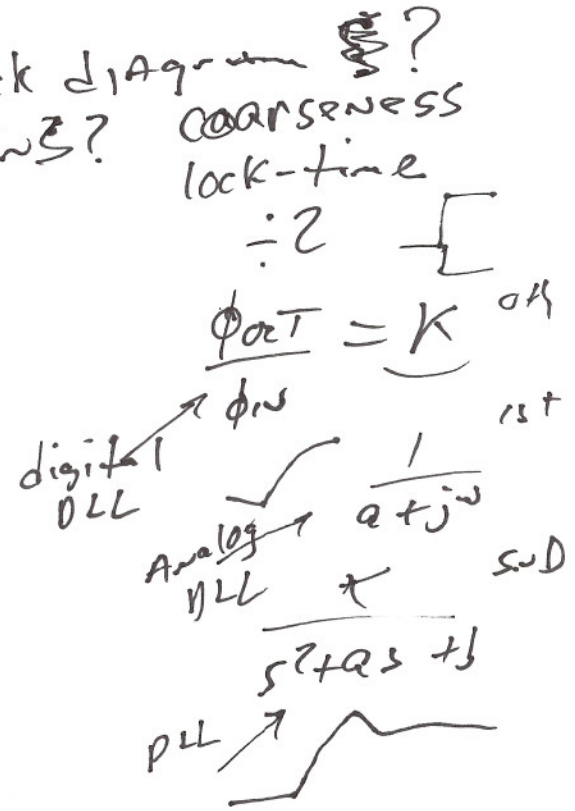 k diagram ?
ns? coarseness
lock-time
÷2
ϕout = K oth
ϕin
1st
digital
DLL
1
a + jω
Analog
DLL
2nD
s²+as +b
PLL